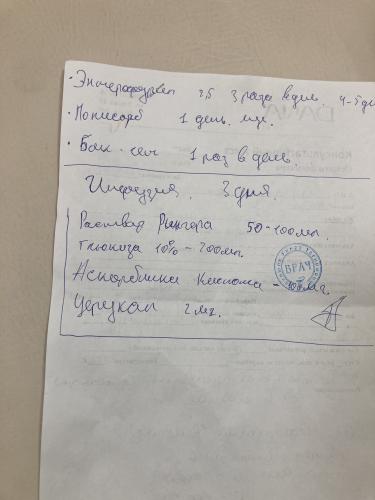 · Энтерофурил 2,5 3 раза в день. 4-5 дн
· Полисорб 1 день.
· Бак-сет 1 раз в день
Инфузия. 3 дня.
Раствор Рингера 50-100мл.
Глюкоза 10% - 200мл.
Аскорбинка кислота - 100мг.
Церукал 2 мг.
ВРАЧ